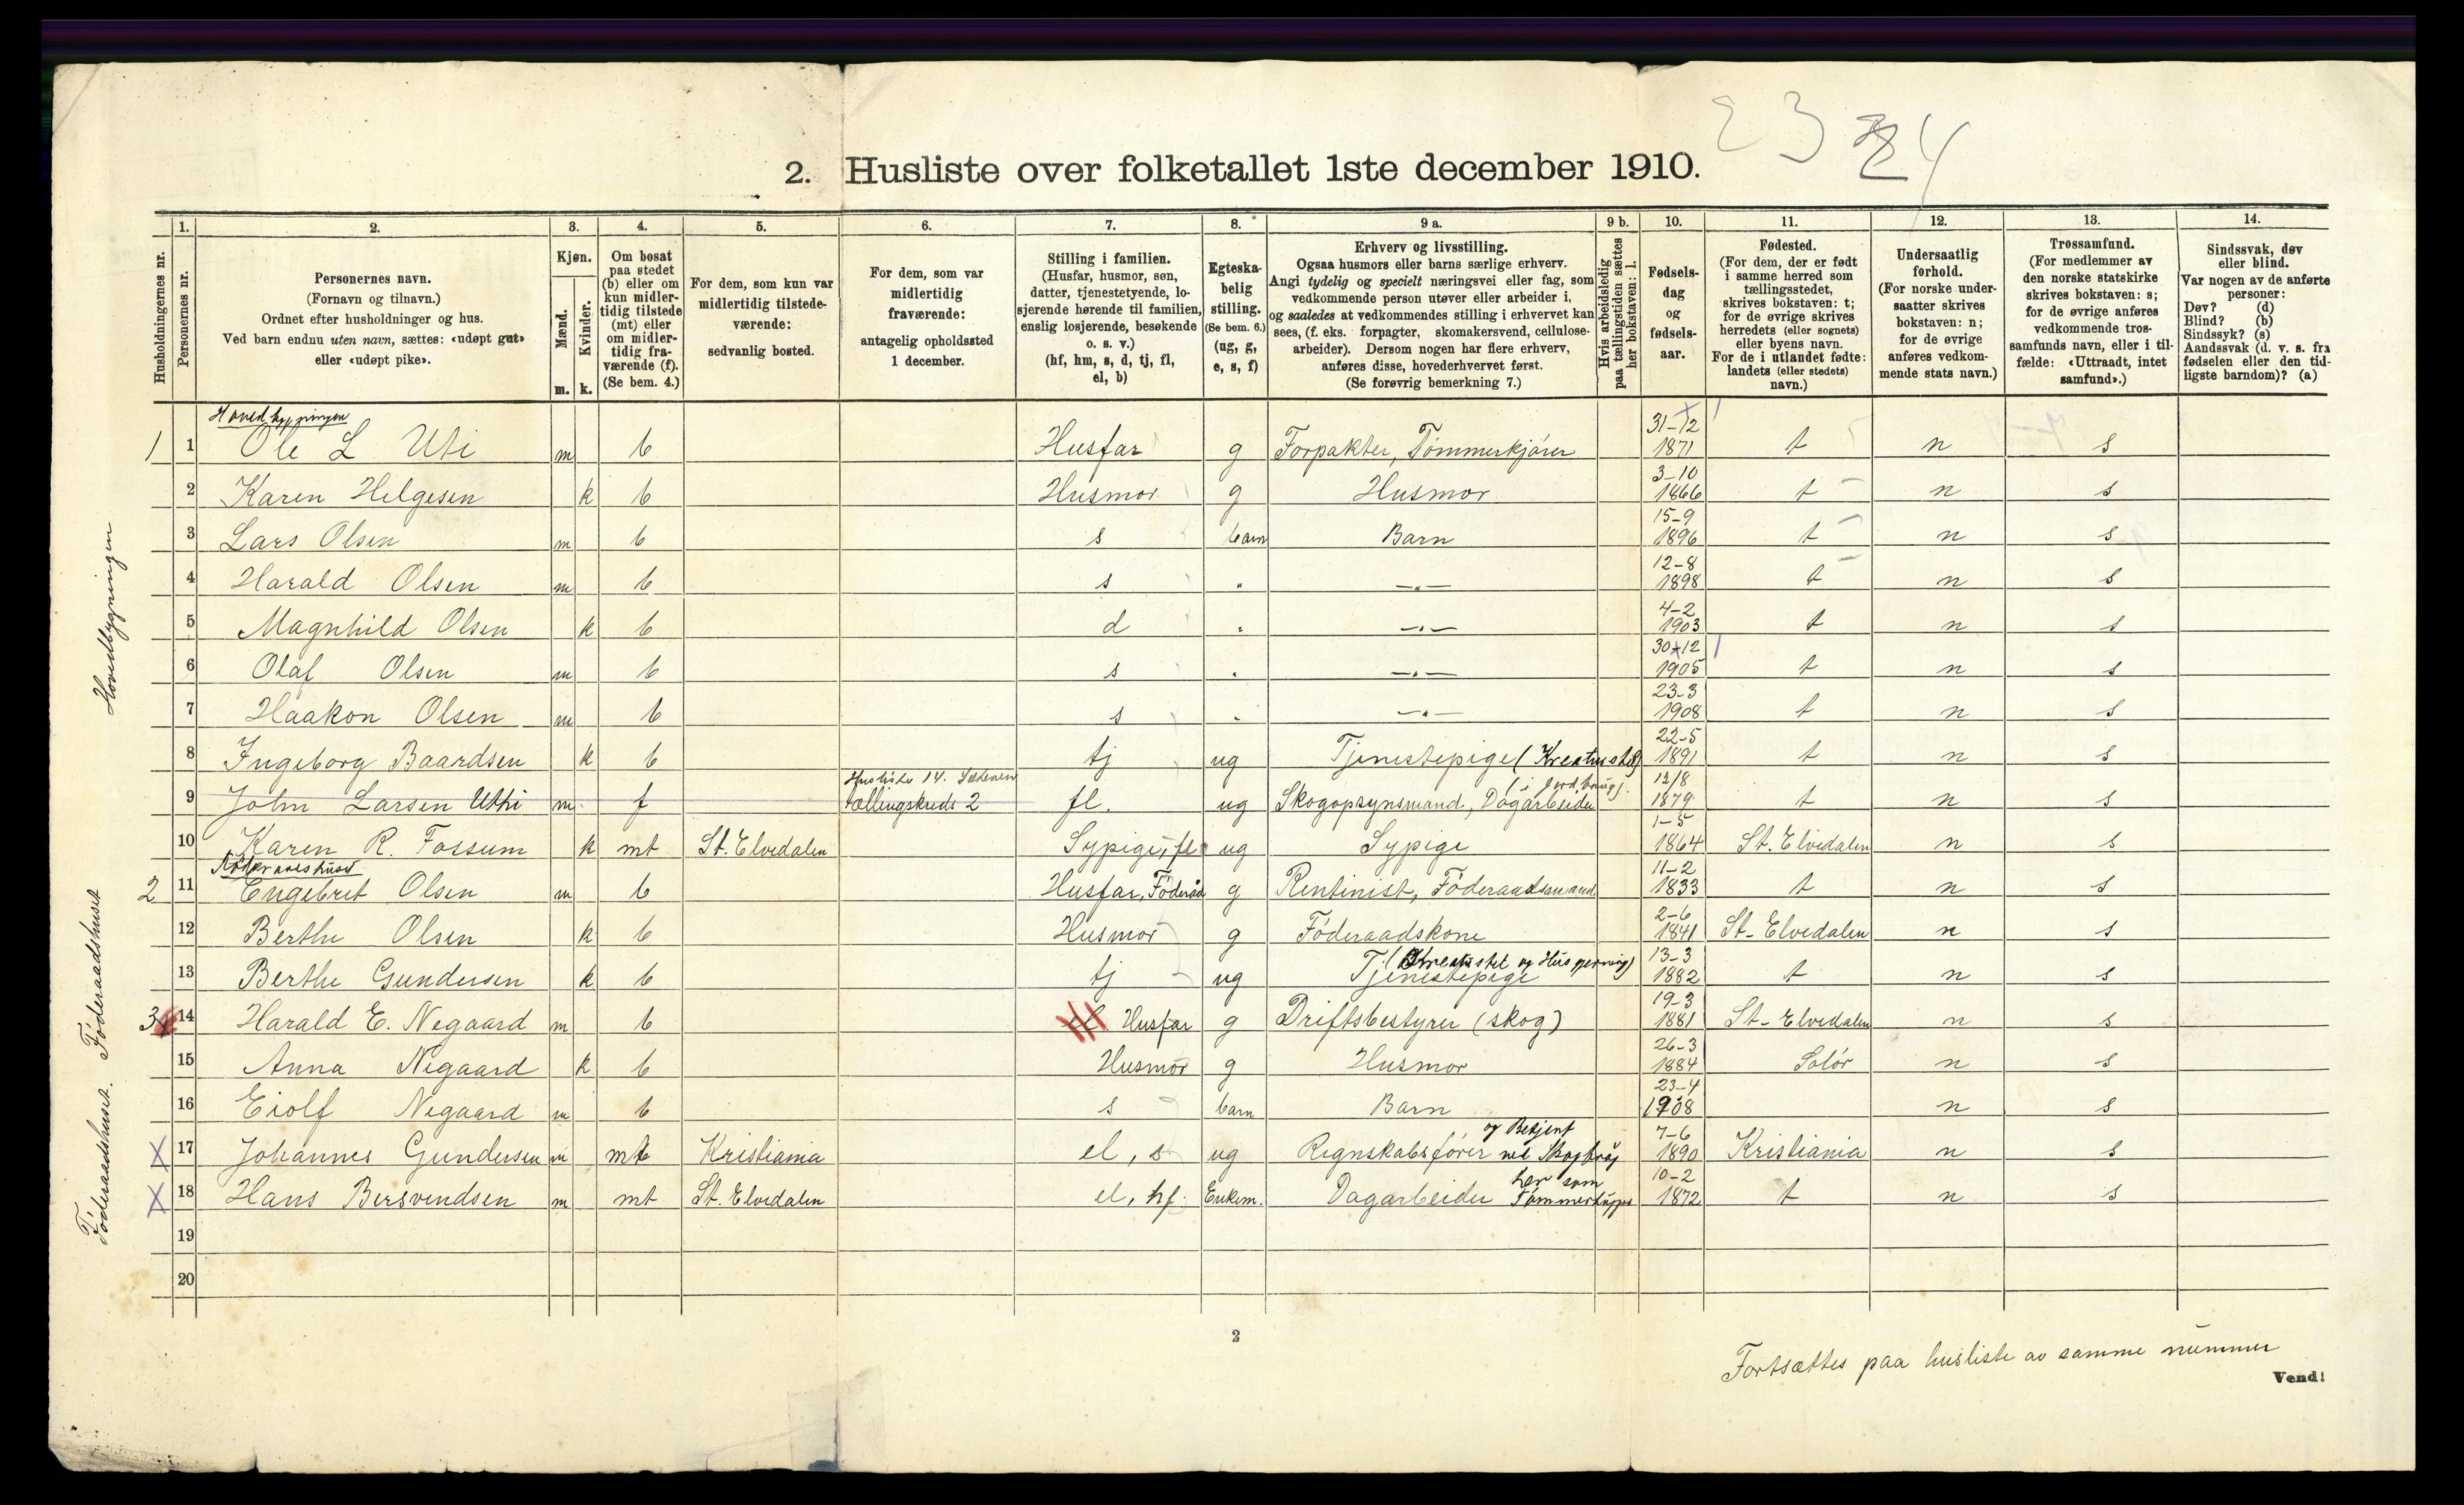 23 24
2. Husliste over folketallet 1ste december 1910.
Husholdningernes nr.
1. Personernes nr.
2. Personernes navn.
(Fornavn og tilnavn.)
Ordnet efter husholdninger og hus.
Ved barn endnu uten navn, sættes: «udøpt gut»
eller «udøpt pike».
3. Kjøn.
Mænd. m.
Kvinder. k.
4. Om bosat
paa stedet
(b) eller om
kun midler-
tidig tilstede
(mt) eller
om midler-
tidig fra-
værende (f).
(Se bem. 4.)
5. For dem, som kun var
midlertidig tilstede-
værende:
sedvanlig bosted.
6. For dem, som var
midlertidig
fraværende:
antagelig opholdssted
1 december.
7. Stilling i familien.
(Husfar, husmor, søn,
datter, tjenestetyende, lo-
sjerende hørende til familien,
enslig losjerende, besøkende
o. s. v.)
(hf, hm, s, d, tj, fl,
el, b)
8. Egteska-
belig
stilling.
(Se bem. 6.)
(ug, g,
e, s, f)
9 a. Erhverv og livsstilling.
Ogsaa husmors eller barns særlige erhverv.
Angi tydelig og specielt næringsvei eller fag, som
vedkommende person utøver eller arbeider i,
og saaledes at vedkommendes stilling i erhvervet kan
sees, (f. eks. forpagter, skomakersvend, cellulose-
arbeider). Dersom nogen har flere erhverv,
anføres disse, hovederhvervet først.
(Se forøvrig bemerkning 7.)
9 b. Hvis arbeidsledig
paa tællingstiden sættes
her bokstaven: l.
10. Fødsels-
dag
og
fødsels-
aar.
11. Fødested.
(For dem, der er født
i samme herred som
tællingsstedet,
skrives bokstaven: t;
for de øvrige skrives
herredets (eller sognets)
eller byens navn.
For de i utlandet fødte:
landets (eller stedets)
navn.)
12. Undersaatlig
forhold.
(For norske under-
saatter skrives
bokstaven: n;
for de øvrige
anføres vedkom-
mende stats navn.)
13. Trossamfund.
(For medlemmer av
den norske statskirke
skrives bokstaven: s;
for de øvrige anføres
vedkommende tros-
samfunds navn, eller i til-
fælde: «Uttraadt, intet
samfund».)
14. Sindssvak, døv
eller blind.
Var nogen av de anførte
personer:
Døv? (d)
Blind? (b)
Sindssyk? (s)
Aandssvak (d. v. s. fra
fødselen eller den tid-
ligste barndom)? (a)
Hovedbygningen
1 1 Ole L Uti m b Husfar g Forpakter, Tømmerkjører 31-12 1871 t n s
2 Karen Helgesen k b Husmor g Husmor 3-10 1866 t n s
3 Lars Olsen m b s barn Barn 15-9 1896 t n s
4 Harald Olsen m b s " —"— 12-8 1898 t n s
5 Magnhild Olsen k b d " —"— 4-2 1903 t n s
6 Olaf Olsen m b s " —"— 30-12 1905 t n s
7 Haakon Olsen m b s " —"— 23-3 1908 t n s
8 Ingeborg Baardsen k b tj ug Tjenestepige (Kreaturstel) 22-5 1891 t n s
9 John Larsen Uthi m f Husliste 14. tællingskreds 2 fl. ug Skogopsynsmand, Dagarbeider (i Jordbrug). 12/8 1879 t n s
10 Karen R. Fossum k mt St. Elvedalen Sypige, fl ug Sypige 1-5 1864 St. Elvedalen n s
Föderaadshuset
2 11 Engebret Olsen m b Husfar, Föderåd g Rentinist, Föderaadsmand 11-2 1833 t n s
12 Berthe Olsen k b Husmor g Föderaadskone 2-6 1841 St. Elvedalen n s
13 Berthe Gundersen k b tj ug Tjenestepige (Kreaturstel og Husgerning) 13-3 1882 t n s
3 14 Harald E. Negaard m b Husfar g Driftsbestyrer (skog) 19-3 1881 St. Elvedalen n s
15 Anna Negaard k b Husmor g Husmor 26-3 1884 Solör n s
16 Eiolf Negaard m b s barn Barn 23-4 1908 n s
X 17 Johannes Gundersen m mt Kristiania el, s ug Regnskabsfører og Betjent ved Skogbrug 7-6 1890 Kristiania n s
X 18 Hans Bersvendsen m mt St. Elvedalen el, hf. Enkem. Dagarbeider her som Tømmerhugger 10-2 1872 t n s
19
20
Hovedbygningen
Föderaadshuset
Föderaadshuset.
2
Fortsættes paa husliste av samme nummer
Vend!